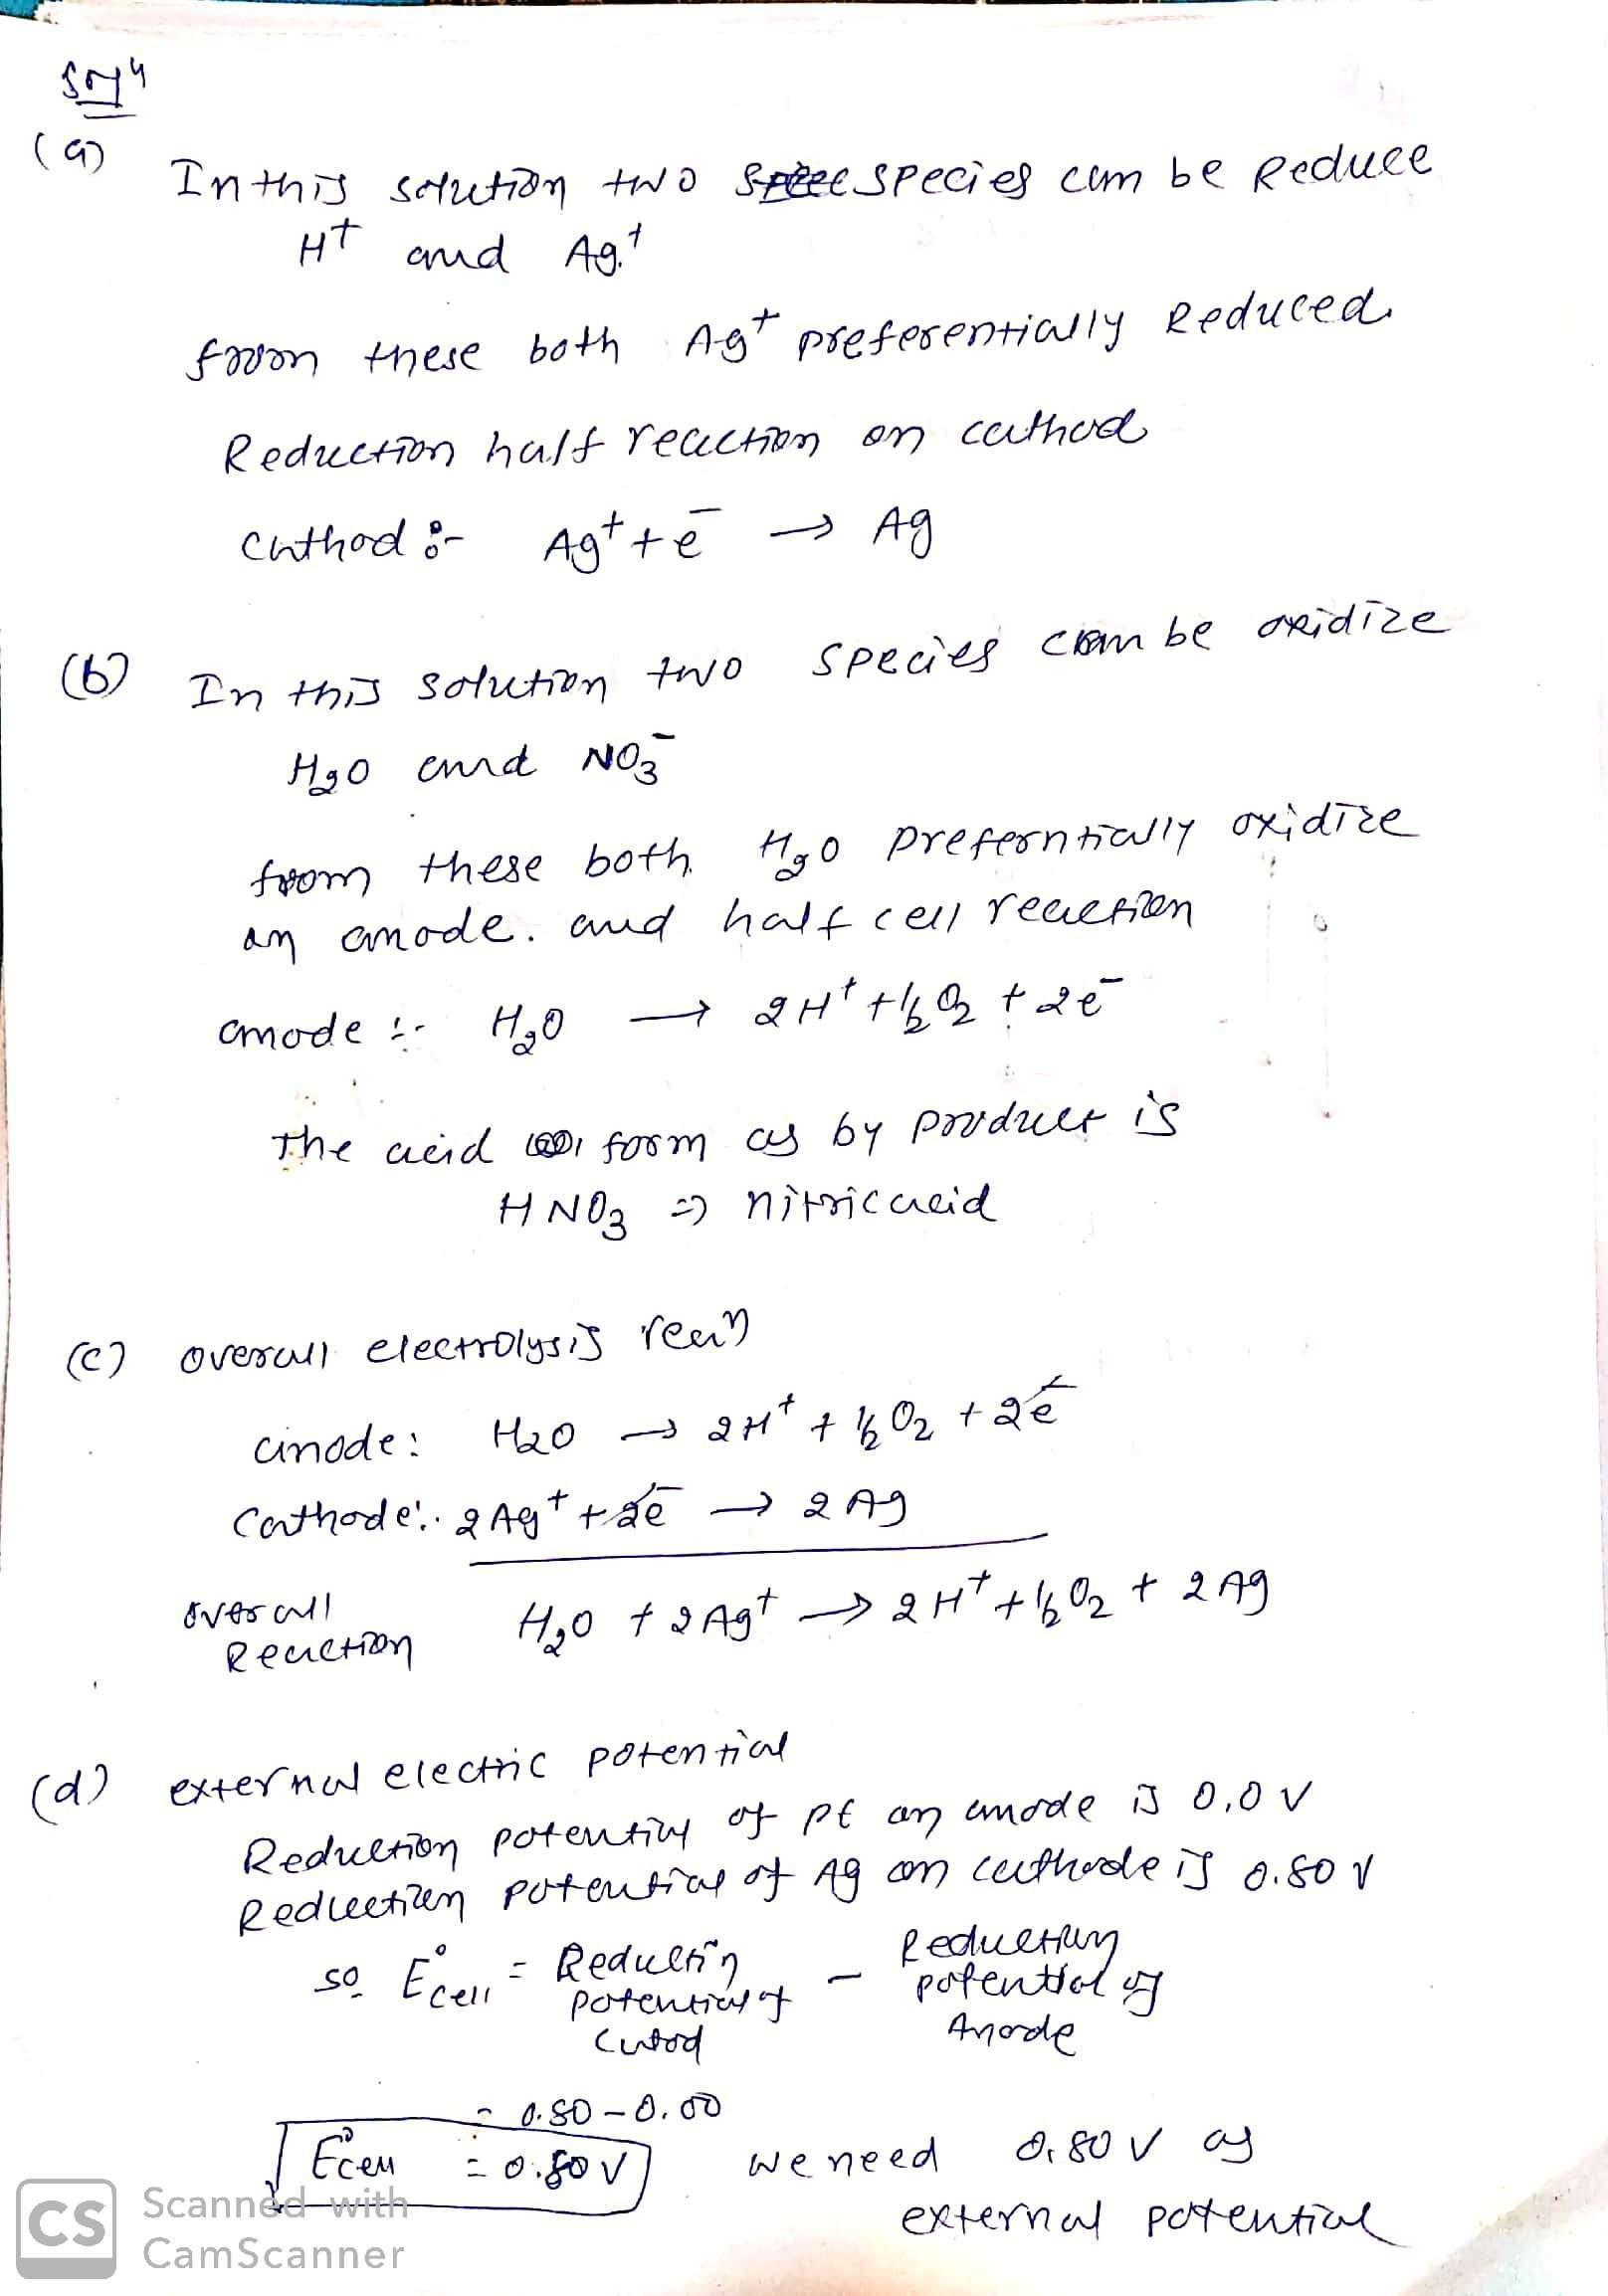 Soln
(a)
In this solution two species can be Reduce
H+ and Ag.+
from these both Ag+ preferentially Reduced.
Reduction half reaction on cathod
Cathod :- Ag+ + e- → Ag
(b) In this solution two species can be oxidize
H2O and NO3-
from these both H2O preferntially oxidize
on anode. and half cell reaction
anode :- H2O → 2H+ + 1/2 O2 + 2e-
The acid form as by product is
HNO3 => nitric acid
(c) overall electrolysis reacn
anode: H2O → 2H+ + 1/2 O2 + 2e-
Cathode:. 2Ag+ + 2e- → 2Ag
overall
Reaction H2O + 2Ag+ → 2H+ + 1/2 O2 + 2Ag
(d) external electric potential
Reduction potential of pt on anode is 0.0 V
Reduction potential of Ag on cathode is 0.80 V
so E°cell = Reduction potential of Catod - Reduction potential of Anode
= 0.80 - 0.00
E°cell = 0.80 V we need 0.80 V as
external potential
CS Scanned with
CamScanner